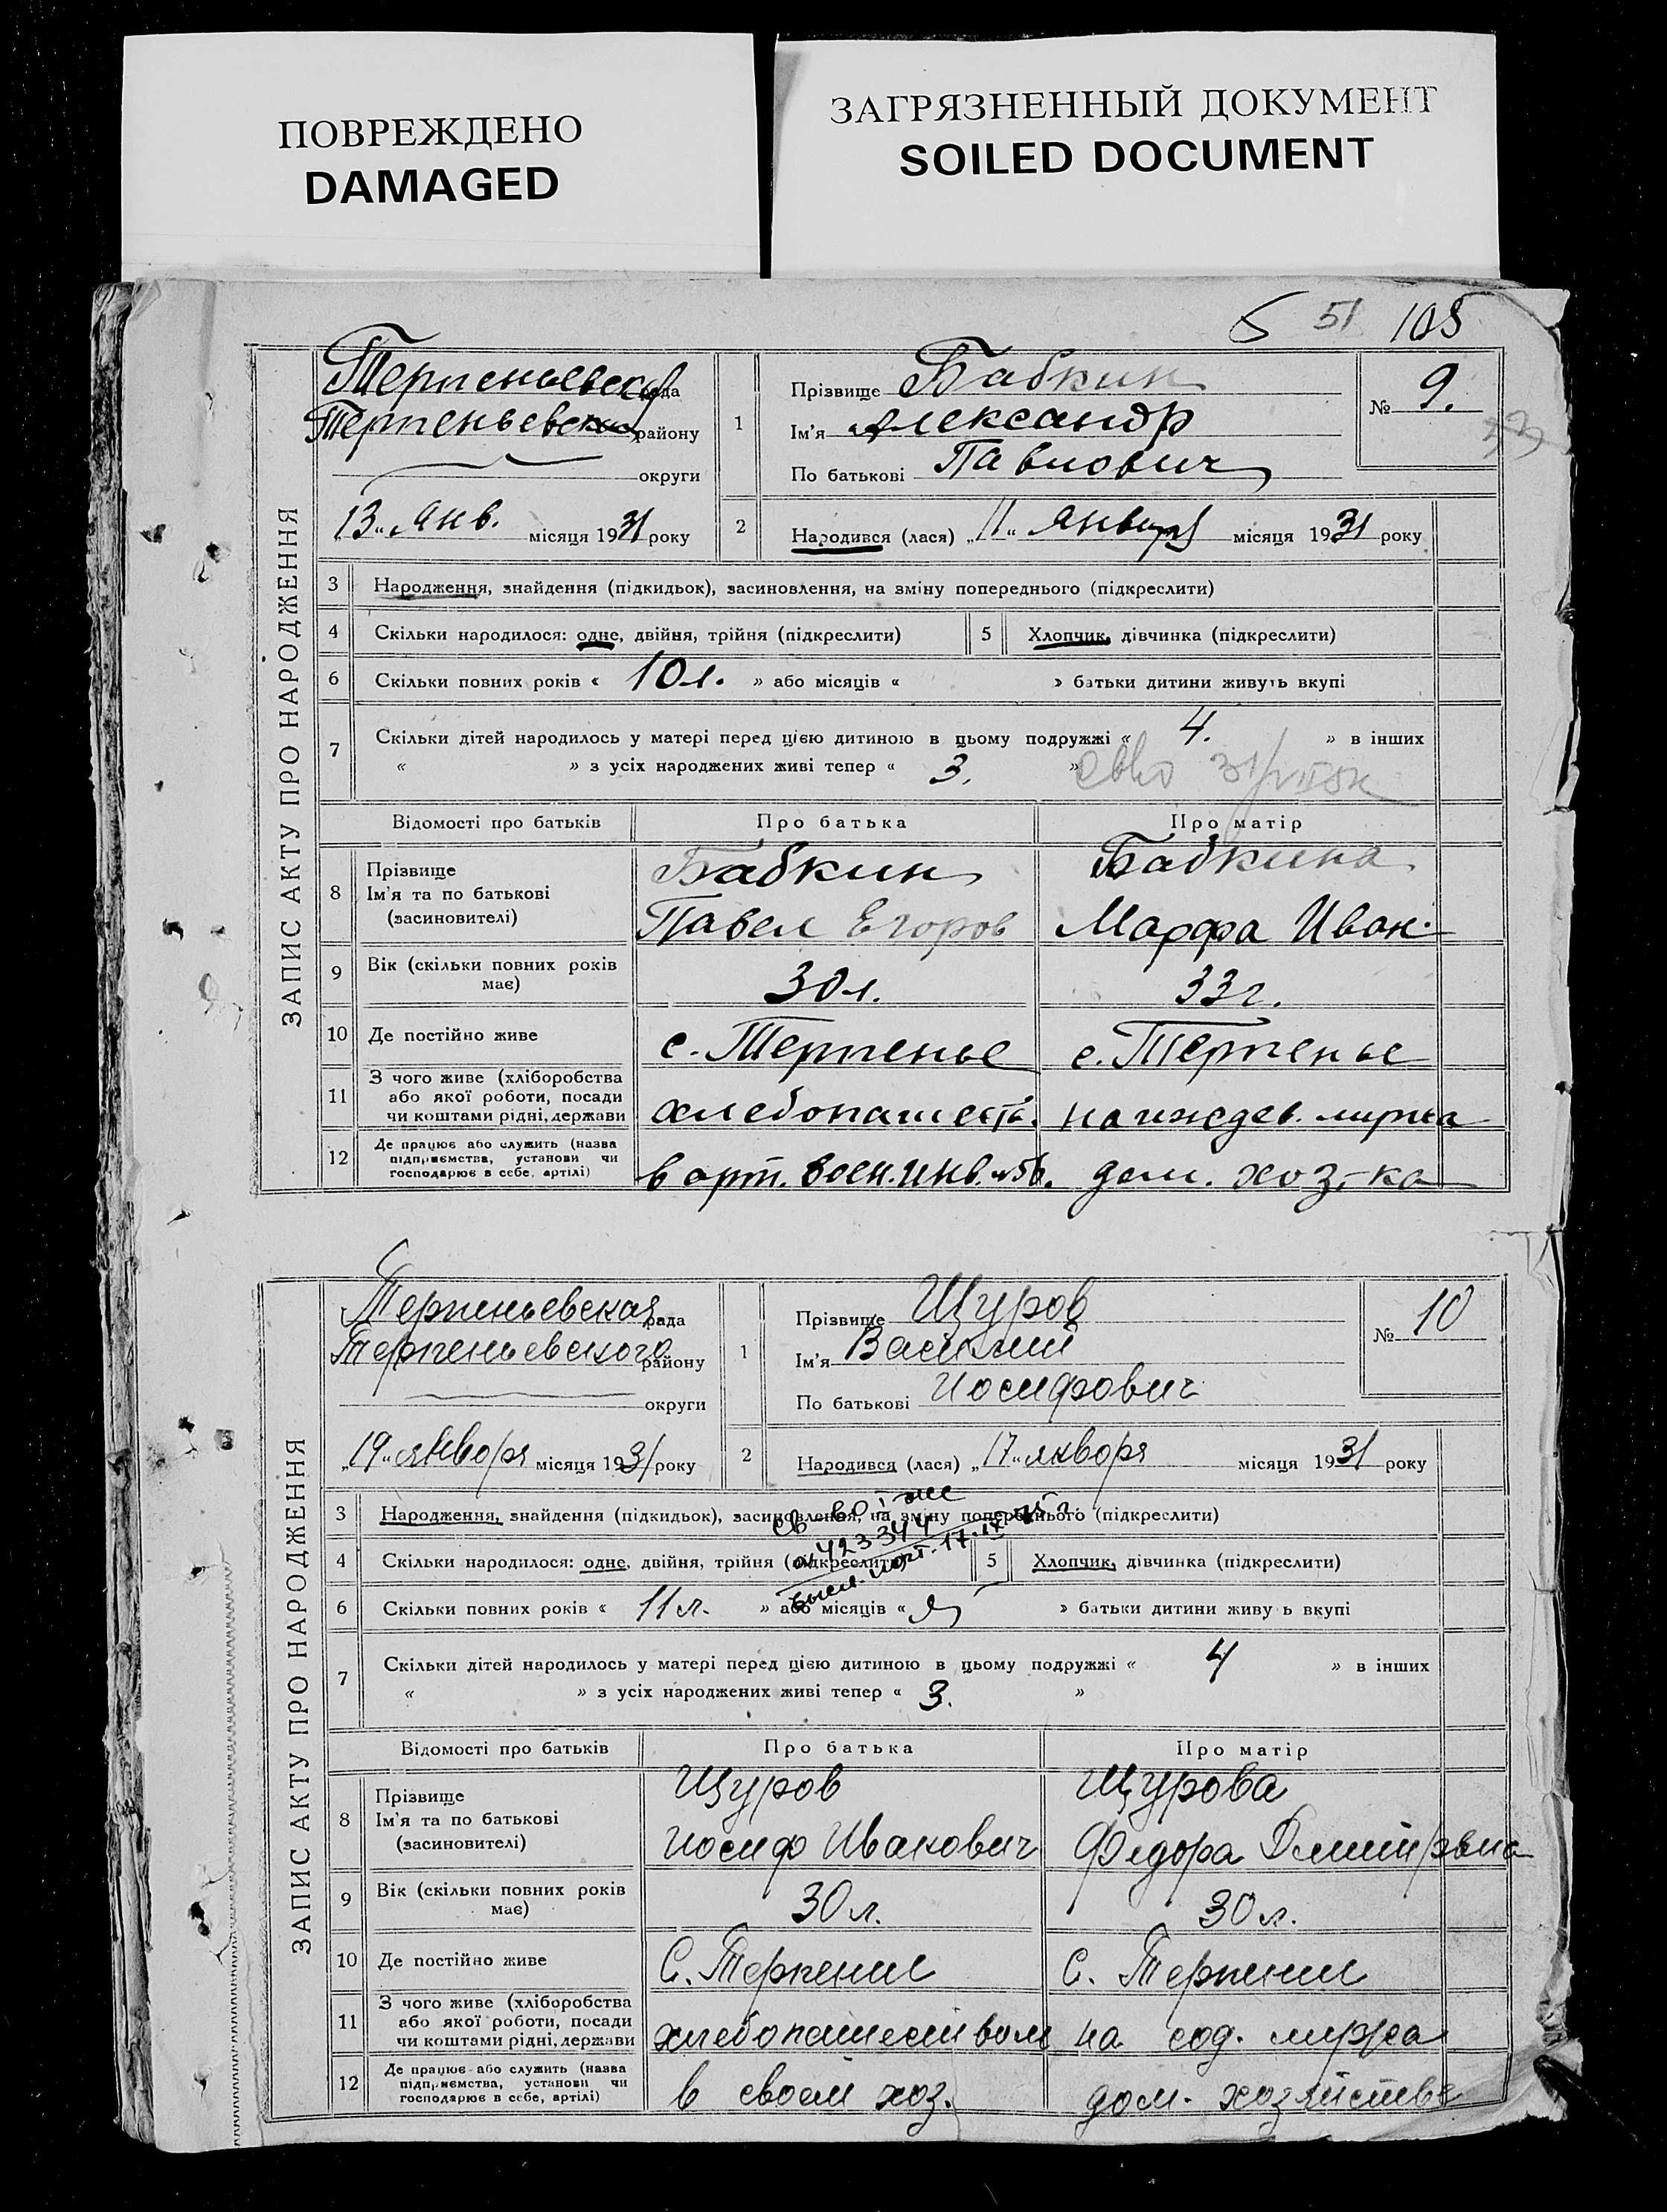 ПОВРЕЖДЕНО
DAMAGED
ЗАГРЯЗНЕННЫЙ ДОКУМЕНТ
SOILED DOCUMENT
51 105
ЗАПИС АКТУ ПРО НАРОДЖЕННЯ
Терпеньевская рада
Терпеньевский району
округи
„13“ Янв. місяця 1931 року
1 Прізвище Бабкин
Ім'я Александр
По батькові Павлович
№ 9.
2 Народився (лася) „11“ января місяця 1931 року
3 Народження, знайдення (підкидьок), засиновлення, на зміну попереднього (підкреслити)
4 Скільки народилося: одне, двійня, трійня (підкреслити) 5 Хлопчик, дівчинка (підкреслити)
6 Скільки повних років « 10 л. » або місяців « » батьки дитини живуть вкупі
7 Скільки дітей народилось у матері перед цією дитиною в цьому подружжі « 4. » в інших
« » з усіх народжених живі тепер « 3. »
Відомості про батьків Про батька Про матір
8 Прізвище Бабкин Бабкина
Ім'я та по батькові
(засиновителі) Павел Егоров Марфа Иван.
9 Вік (скільки повних років має) 30 л. 33 г.
10 Де постійно живе с. Терпенье с. Терпенье
11 З чого живе (хліборобства
або якої роботи, посади
чи коштами рідні, держави хлебопашеств. на иждев. мужа
12 Де працює або служить (назва
підприємства, установи чи
господарює в себе, артілі) в арт. воен. инв. дом. хоз-ка
ЗАПИС АКТУ ПРО НАРОДЖЕННЯ
Терпеньевская рада
Терпеньевского району
округи
„19“ января місяця 1931 року
1 Прізвище Щуров
Ім'я Василий
По батькові Иосифович
№ 10
2 Народився (лася) „17“ января місяця 1931 року
3 Народження, знайдення (підкидьок), засиновлення, на зміну попереднього (підкреслити)
4 Скільки народилося: одне, двійня, трійня (підкреслити) 5 Хлопчик, дівчинка (підкреслити)
6 Скільки повних років « 11 л. » або місяців « » батьки дитини живу ь вкупі
7 Скільки дітей народилось у матері перед цією дитиною в цьому подружжі « 4 » в інших
« » з усіх народжених живі тепер « 3. »
Відомості про батьків Про батька Про матір
8 Прізвище Щуров Щурова
Ім'я та по батькові
(засиновителі) Иосиф Иванович Федора Дмитрэвна
9 Вік (скільки повних років має) 30 л. 30 л.
10 Де постійно живе С. Терпение С. Терпение
11 З чого живе (хліборобства
або якої роботи, посади
чи коштами рідні, держави хлебопашеством на сод. мужа
12 Де працює або служить (назва
підприємства, установи чи
господарює в себе, артілі) в своем хоз. дом. хозяйстве